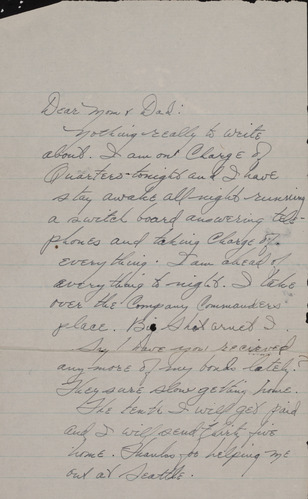 Dear Mom & Dad:
Nothing really to write
about. I am on Charge of
Quarters tonight and I have
stay awake all night running
a switch board answering tele-
phones and taking Charge of
everything. I am ahead of
everything to night. I take
over the Company Commanders
place. Big Shot arnet I.
Say! have you recieved
any more of my bonds lately?
They sure slow getting home.
The tenth I will get paid
and I will send thirty five
home. Thanks for helping me
out at Seattle.